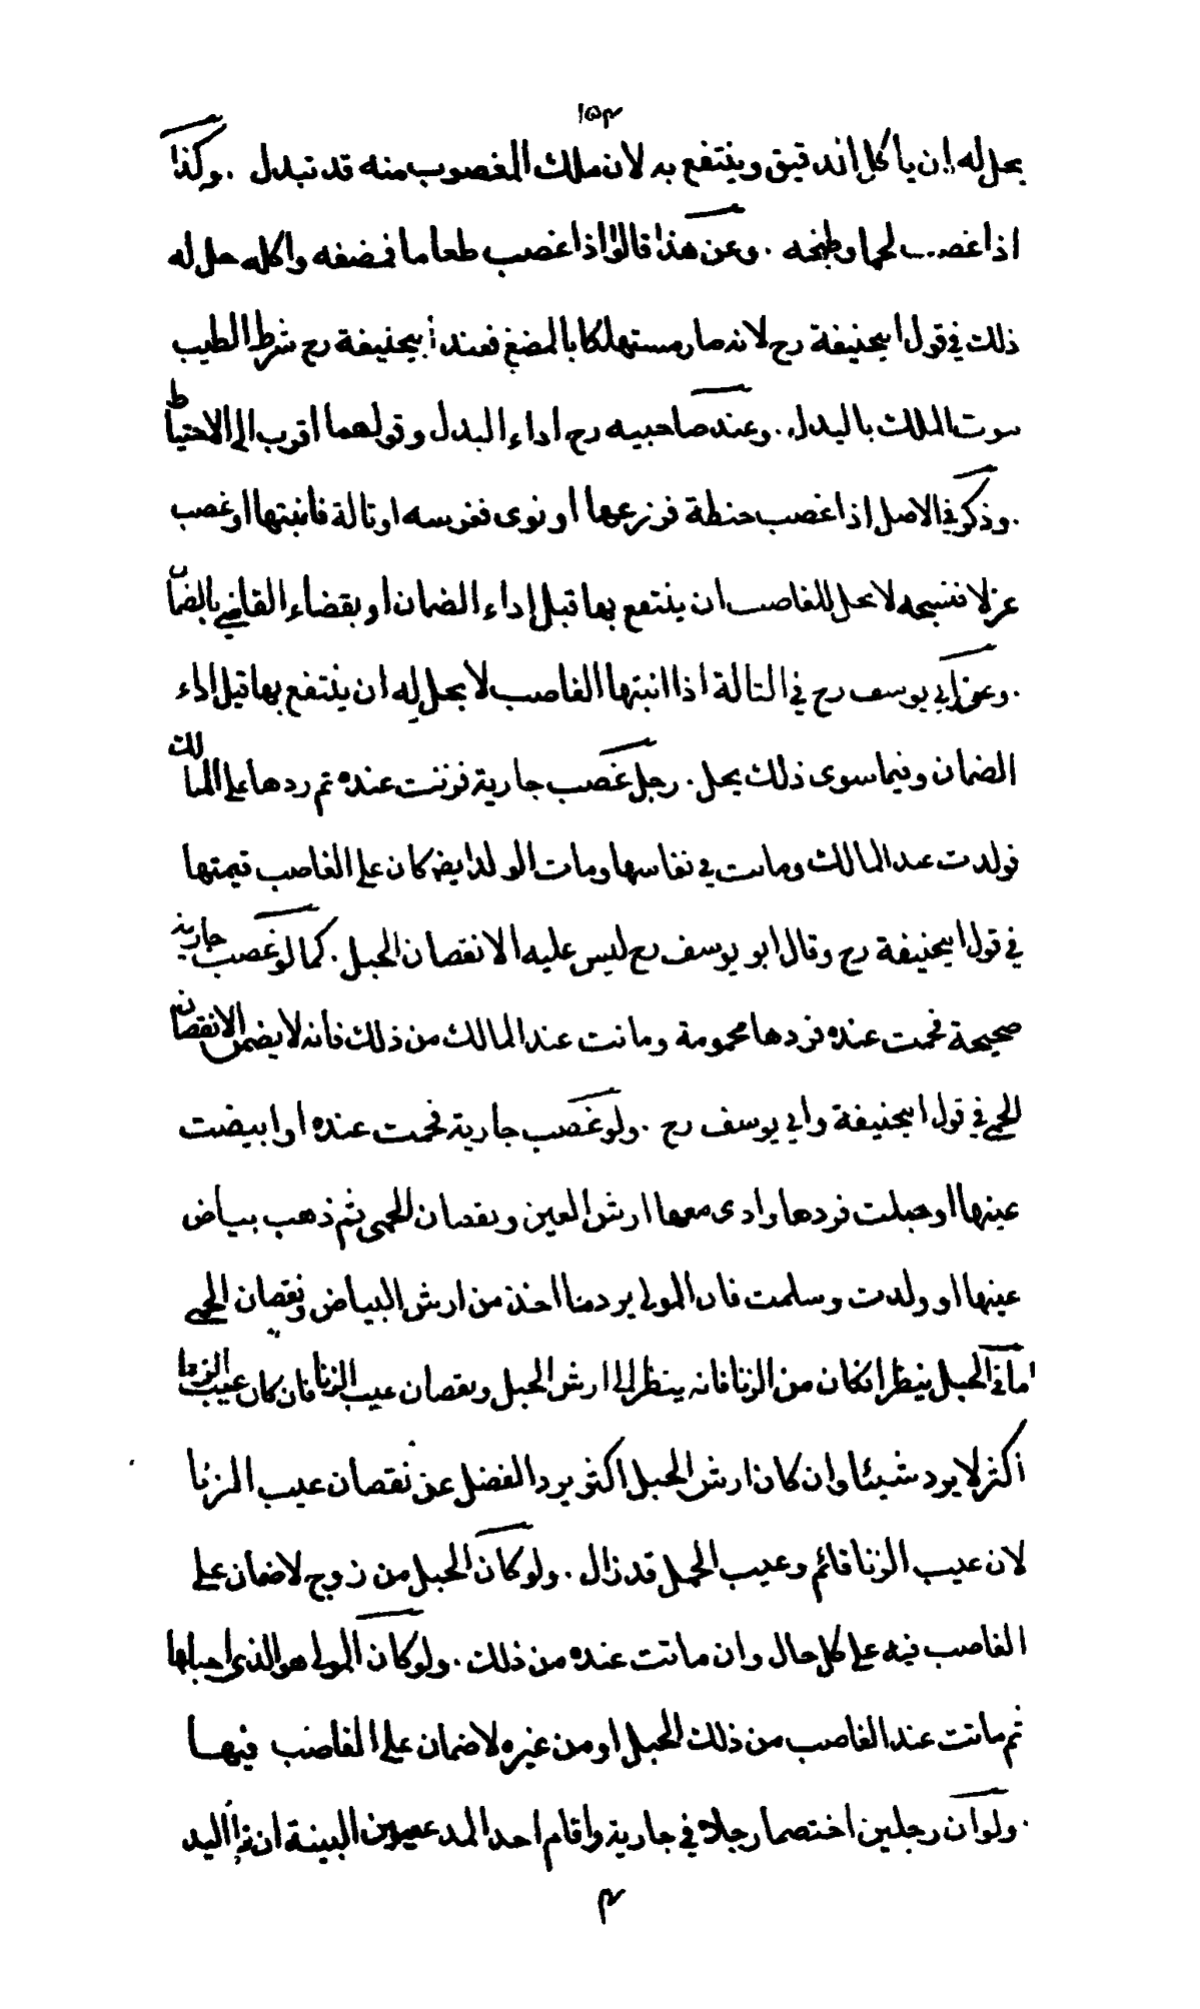 ١٥٣
يحل له ان ياكل الدقيق وينتفع به لان ملك المغصوب منه قد تبدل . وكذا
اذا غصب لحما وطبخه . وعن هذا قالوا اذا غصب طعاما فمضغه واكله حل له
ذلك في قول ابيحنيفة رح لانه صار مستهلكا بالمضغ فعند أبيحنيفة رح شرط الطيب
سوت الملك بالبدل . وعند صاحبيه رح اداء البدل وقولهما اقرب الى الاحتياط
. وذكر في الاصل اذا غصب حنطة فزرعها او نوى فغرسه او تالة فانبتها او غصب
غزلا فنسجه لا يحل للغاصب ان ينتفع بها قبل اداء الضمان او بقضاء القاضي بالضمان
. وعن ابي يوسف رح في التالة اذا انبتها الغاصب لا يحل له ان ينتفع بها قبل اداء
الضمان وفيما سوى ذلك يحل . رجل غصب جارية فزنت عنده ثم ردها على المالك
فولدت عند المالك وماتت في نفاسها ومات الولد ايضا كان على الغاصب قيمتها
في قول ابيحنيفة رح وقال ابو يوسف رح ليس عليه الا نقصان الحبل . كما لو غصب جارية
صحيحة فحمت عنده فردها محمومة وماتت عند المالك من ذلك فانه لا يضمن الا نقصان
الحمى في قول ابيحنيفة وابي يوسف رح . ولو غصب جارية فحمت عنده او ابيضت
عينها او حبلت فردها وادى معها ارش العين ونقصان الحمى ثم ذهب بياض
عينها او ولدت وسلمت فان المولى يرد ما اخذ من ارش البياض ونقصان الحمى
اما في الحبل ينظر انكان من الزنا فانه ينظر الى ارش الحبل ونقصان عيب الزنا فان كان عيب الزنا
اكثر لا يرد شيئا وان كان ارش الحبل اكثر يرد الفضل عن نقصان عيب الزنا
لان عيب الزنا قائم وعيب الحبل قد زال . ولو كان الحبل من زوج لا ضمان على
الغاصب فيه على كل حال وان ماتت عنده من ذلك . ولو كان المولى هو الذي احبلها
ثم ماتت عند الغاصب من ذلك الحبل او من غيره لا ضمان على الغاصب فيها
. ولو ان رجلين اختصما رجلا في جارية واقام احد المدعيين البينة ان اليد
٣